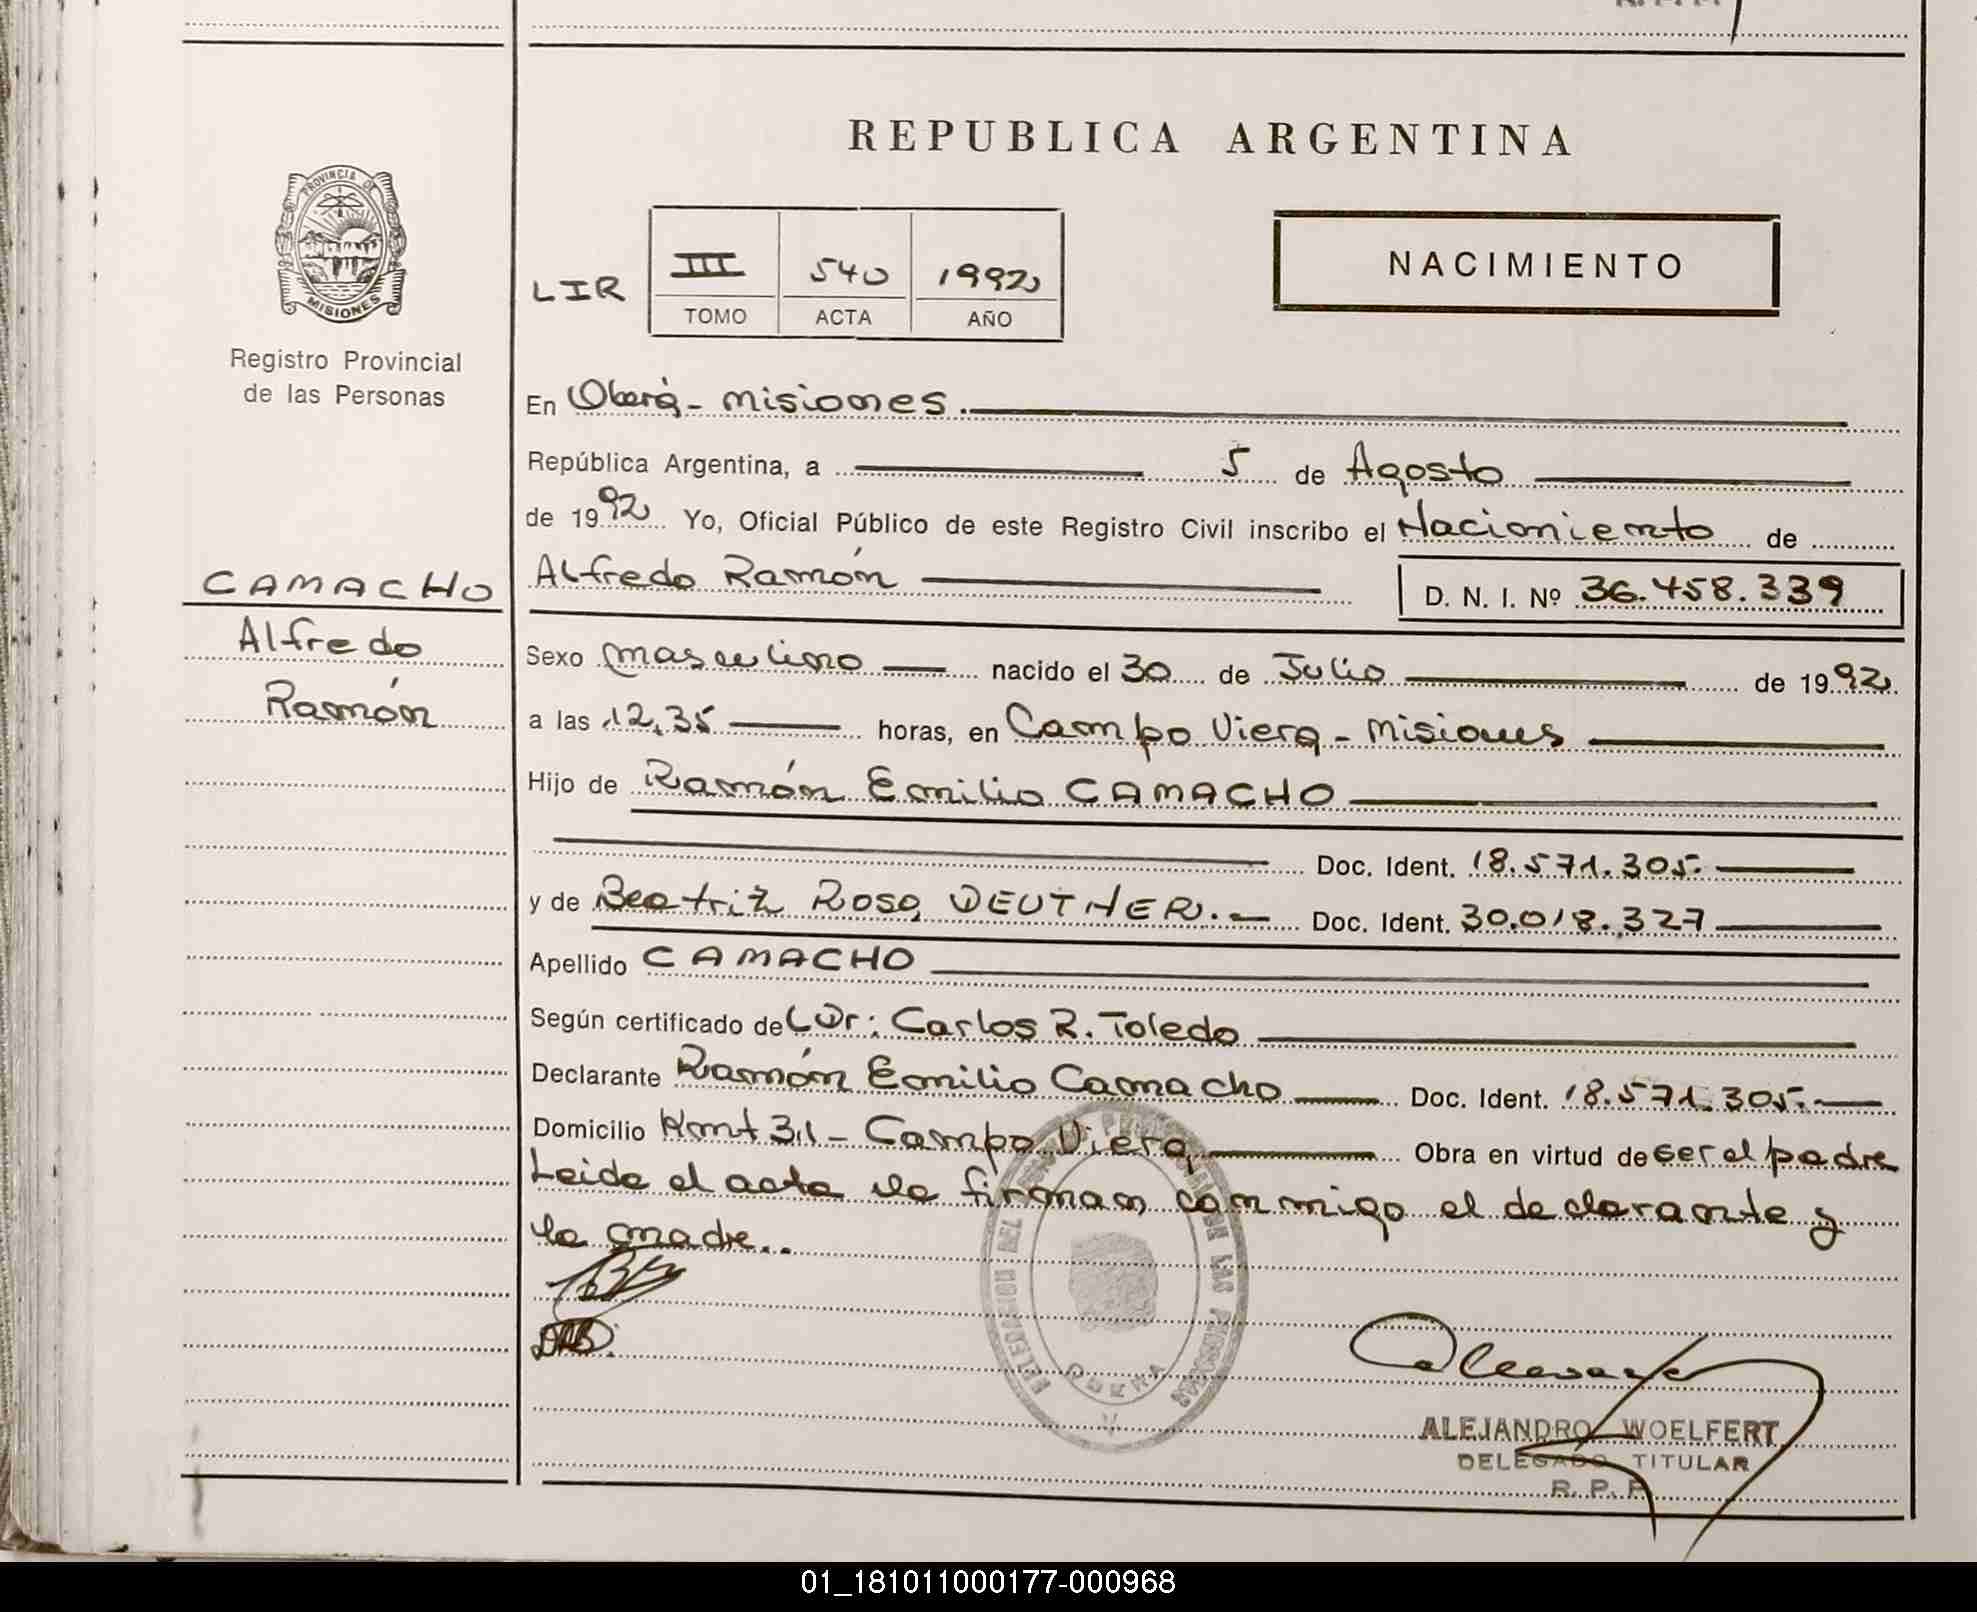 REPUBLICA ARGENTINA
PROVINCIA DE
MISIONES
Registro Provincial
de las Personas
NACIMIENTO
LIR III 540 1992
TOMO ACTA AÑO
En Oberá - Misiones.
República Argentina, a 5 de Agosto
de 1992 Yo, Oficial Público de este Registro Civil inscribo el Nacimiento de
CAMACHO
Alfredo
Ramón
Alfredo Ramón D. N. I. Nº 36.458.339
Sexo masculino nacido el 30 de Julio de 1992
a las 12,35 horas, en Campo Viera - Misiones
Hijo de Ramón Emilio CAMACHO
Doc. Ident. 18.571.305.
y de Beatriz Rosa DEUTHER.- Doc. Ident. 30.018.327
Apellido CAMACHO
Según certificado de Dr: Carlos R. Toledo
Declarante Ramón Emilio Camacho Doc. Ident. 18.571.305.-
Domicilio Kmt 31 - Campo Viera Obra en virtud de ser el padre
Leida el acta la firman conmigo el declarante y
la madre..
ALEJANDRO WOELFERT
DELEGADO TITULAR
R. P. P.
01_181011000177-000968